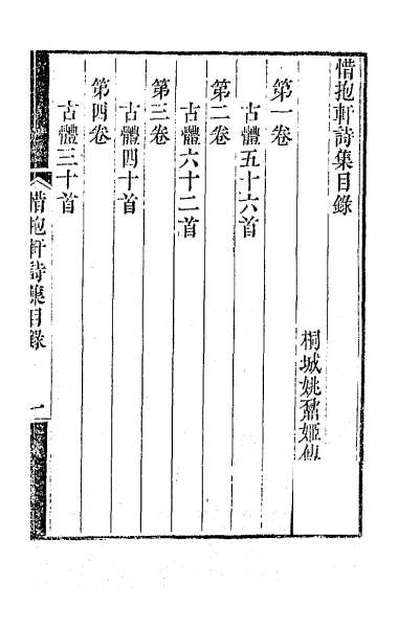 惜抱軒詩集目錄
桐城姚鼐姬傳
第一卷
古體五十六首
第二卷
古體六十二首
第三卷
古體四十首
第四卷
古體三十首
惜抱軒詩集目錄
一